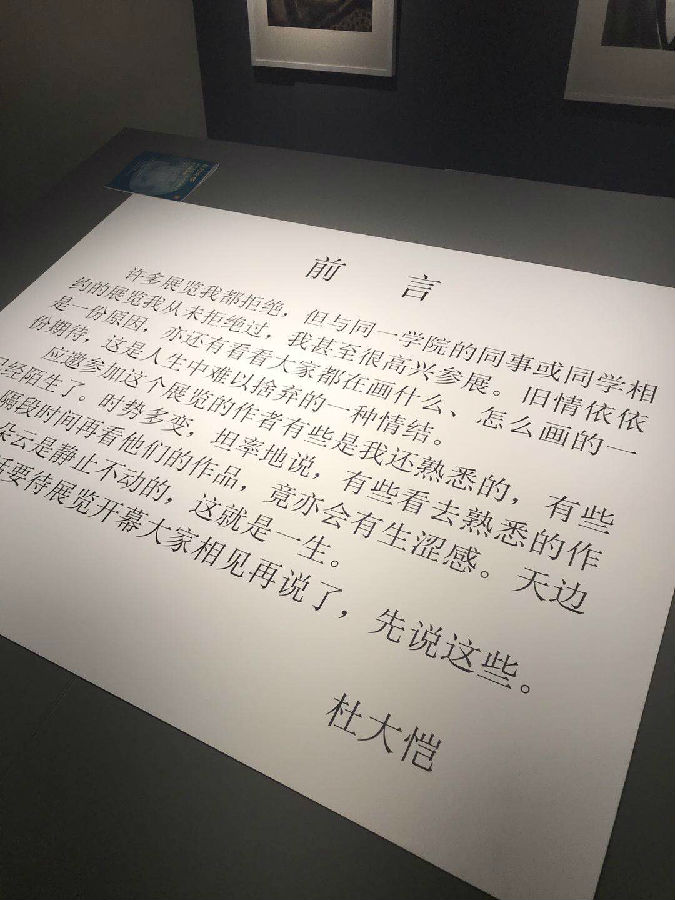 前言
许多展览我都拒绝，但与同一学院的同事或同学相
约的展览我从未拒绝过，我甚至很高兴参展。旧情依依
是一份原因，亦还有看看大家都在画什么、怎么画的一
份期待，这是人生中难以捨弃的一种情结。
应邀参加这个展览的作者有些是我还熟悉的，有些
已经陌生了。时势多变，坦率地说，有些看去熟悉的作
隔段时间再看他们的作品，竟亦会有生涩感。天边
朵云是静止不动的，这就是一生。
要待展览开幕大家相见再说了，先说这些。
杜大恺